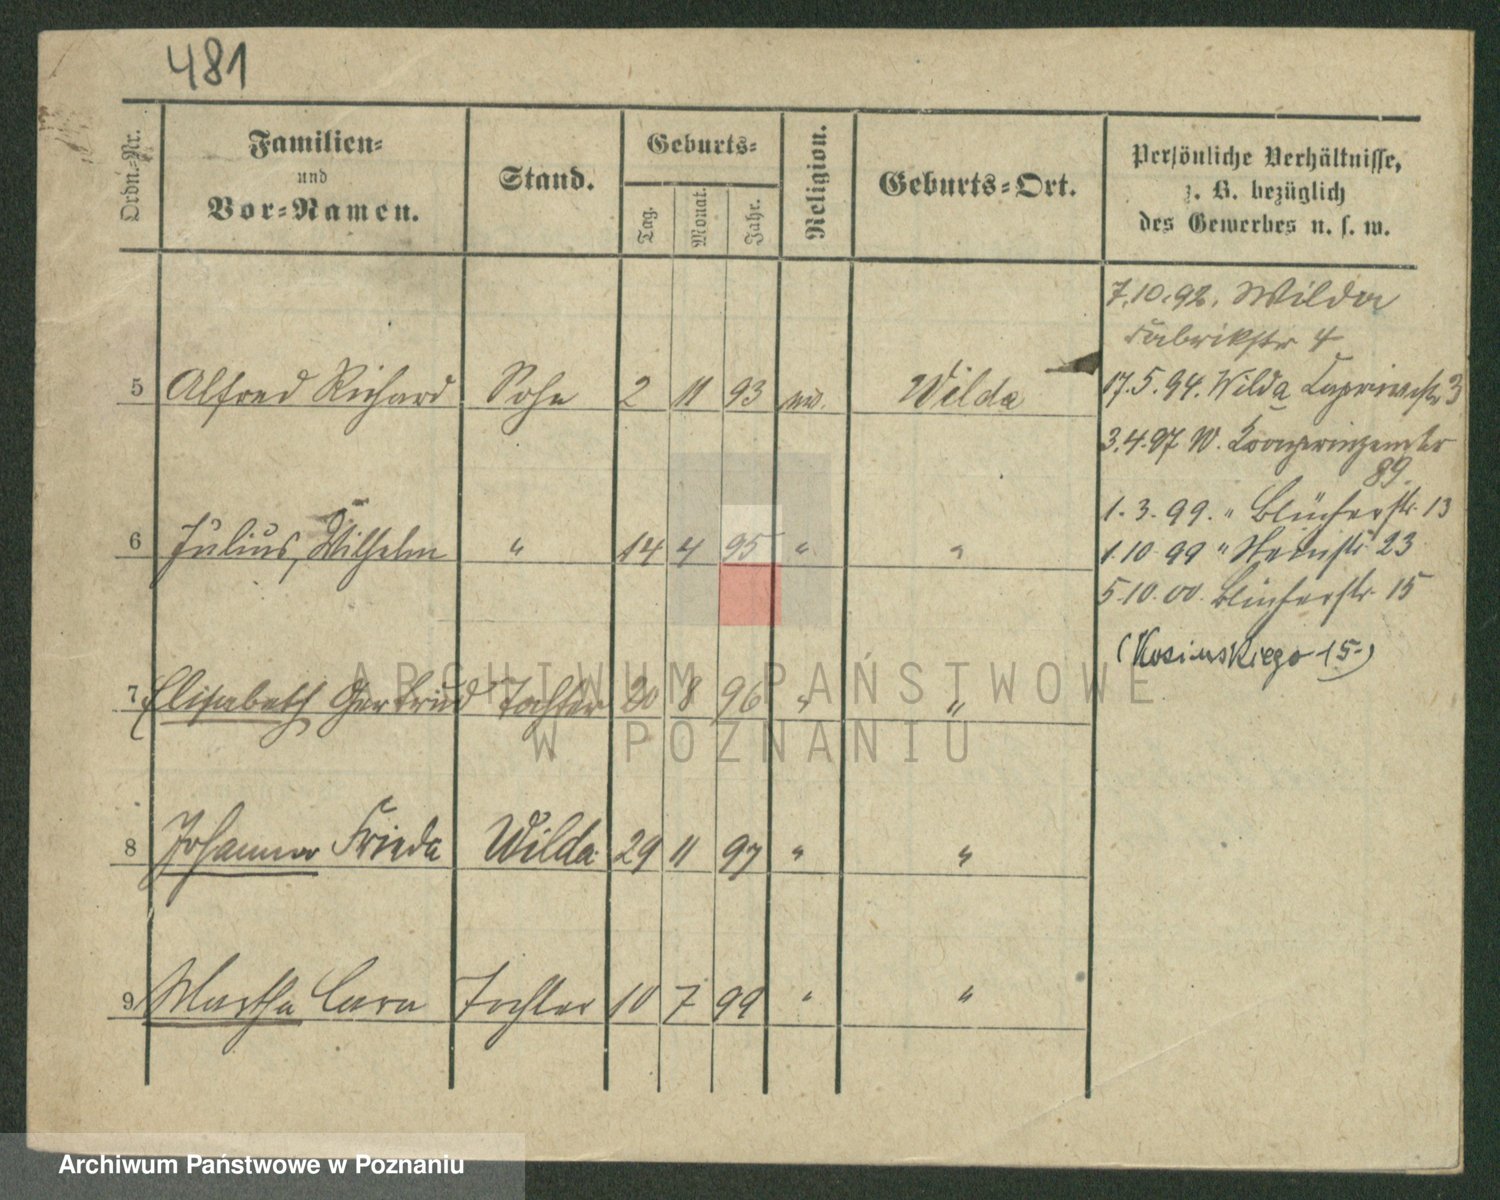 481
Ordn.-Nr.
Familien-
und
Vor-Namen.
Stand.
Geburts-
Tag.
Monat.
Jahr.
Religion.
Geburts-Ort.
Persönliche Verhältnisse,
z. B. bezüglich
des Gewerbes u. s. w.
7.10.92. Wilda
Fabrikstr 4
5 Alfred Richard Sohn 2 11 93 Wilda
17.5.94. Wilda Caprivistr 3
3.4.97 W. Kronprinzenstr
89.
1.3.99. " Blücherstr. 13
6 Julius, Wilhelm " 14 4 95 " "
1.10.99 " 23
5.10.00. Blücherstr. 15
(Kosinskiego 15)
7 Elisabeth Gertrud Tochter 20 8 96 " "
8 Johanna Frieda Wilda 29 11 97 " "
9 Martha Clara Tochter 10 7 99 " "
ARCHIWUM PAŃSTWOWE
W POZNANIU
Archiwum Państwowe w Poznaniu